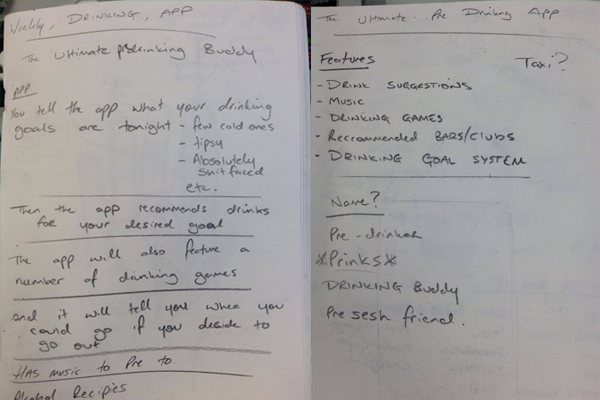 Weekly, DRINKING, APP
The Ultimate Predrinking Buddy
APP
You tell the app what your drinking
goals are tonight - few cold ones
- tipsy
- Absolutely
shitfaced
etc.
Then the app recommends drinks
for your desired goal
The app will also feature a
number of drinking games
and it will tell you where you
could go if you decide to
go out
HAS music to Pre to
Alcohol Recipies
The Ultimate Pre Drinking App
Features
Taxi?
- DRINK SUGGESTIONS
- MUSIC
- DRINKING GAMES
- Reccommended BARS/Clubs
- DRINKING GOAL SYSTEM
Name?
Pre-drinker
*Prinks*
DRINKING Buddy
Pre sesh friend.